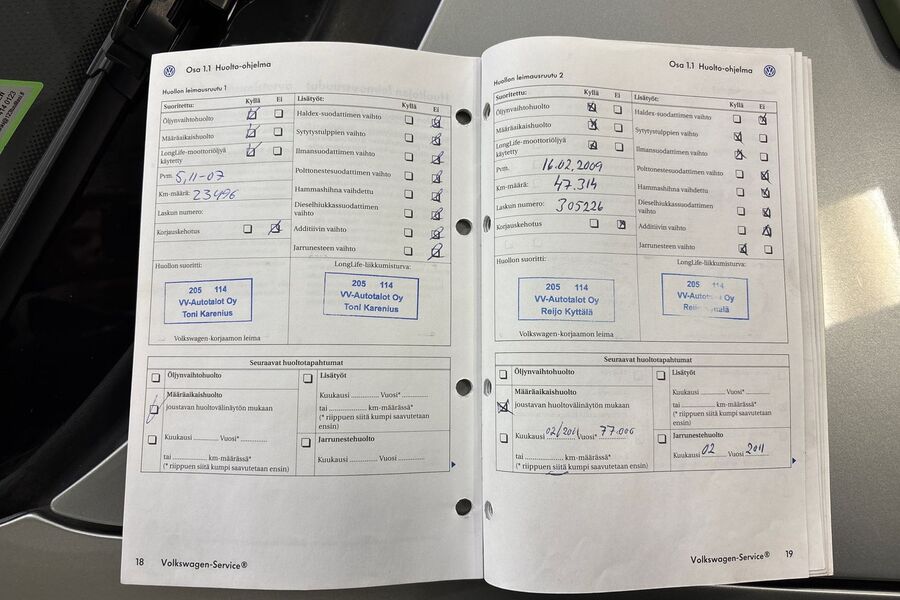 Osa 1.1 Huolto-ohjelma
Huollon leimausruutu 1
Suoritettu: Kyllä Ei
Öljynvaihtohuolto
Määräaikaishuolto
LongLife-moottoriöljyä
käytetty
Pvm. 5,11-07
Km-määrä: 23496
Laskun numero:
Korjauskehotus
Lisätyöt: Kyllä Ei
Haldex-suodattimen vaihto
Sytytystulppien vaihto
Ilmansuodattimen vaihto
Polttonestesuodattimen vaihto
Hammashihna vaihdettu
Dieselhiukkassuodattimen
vaihto
Additiivin vaihto
Jarrunesteen vaihto
Huollon suoritti:
205 114
VV-Autotalot Oy
Toni Karenius
LongLife-liikkumisturva:
205 114
VV-Autotalot Oy
Toni Karenius
Volkswagen-korjaamon leima
Seuraavat huoltotapahtumat
Öljynvaihtohuolto
Määräaikaishuolto
joustavan huoltovälinäytön mukaan
Kuukausi .......... Vuosi* ...............
tai ....................... km-määrässä*
(* riippuen siitä kumpi saavutetaan ensin)
Lisätyöt
Kuukausi .......... Vuosi* ...............
tai ....................... km-määrässä*
(* riippuen siitä kumpi saavutetaan
ensin)
Jarrunestehuolto
Kuukausi .......... Vuosi ...............
18 Volkswagen-Service®
Osa 1.1 Huolto-ohjelma
Huollon leimausruutu 2
Suoritettu: Kyllä Ei
Öljynvaihtohuolto
Määräaikaishuolto
LongLife-moottoriöljyä
käytetty
Pvm. 16.02.2009
Km-määrä: 47.314
Laskun numero: 305226
Korjauskehotus
Lisätyöt: Kyllä Ei
Haldex-suodattimen vaihto
Sytytystulppien vaihto
Ilmansuodattimen vaihto
Polttonestesuodattimen vaihto
Hammashihna vaihdettu
Dieselhiukkassuodattimen
vaihto
Additiivin vaihto
Jarrunesteen vaihto
Huollon suoritti:
205 114
VV-Autotalot Oy
Reijo Kyttälä
LongLife-liikkumisturva:
205 114
Oy
Volkswagen-korjaamon leima
Seuraavat huoltotapahtumat
Öljynvaihtohuolto
Määräaikaishuolto
joustavan huoltovälinäytön mukaan
Kuukausi 02/2011 Vuosi* 77.000
tai ....................... km-määrässä*
(* riippuen siitä kumpi saavutetaan ensin)
Lisätyöt
Kuukausi .......... Vuosi* ...............
tai ....................... km-määrässä*
(* riippuen siitä kumpi saavutetaan
ensin)
Jarrunestehuolto
Kuukausi 02 Vuosi 2011
Volkswagen-Service® 19